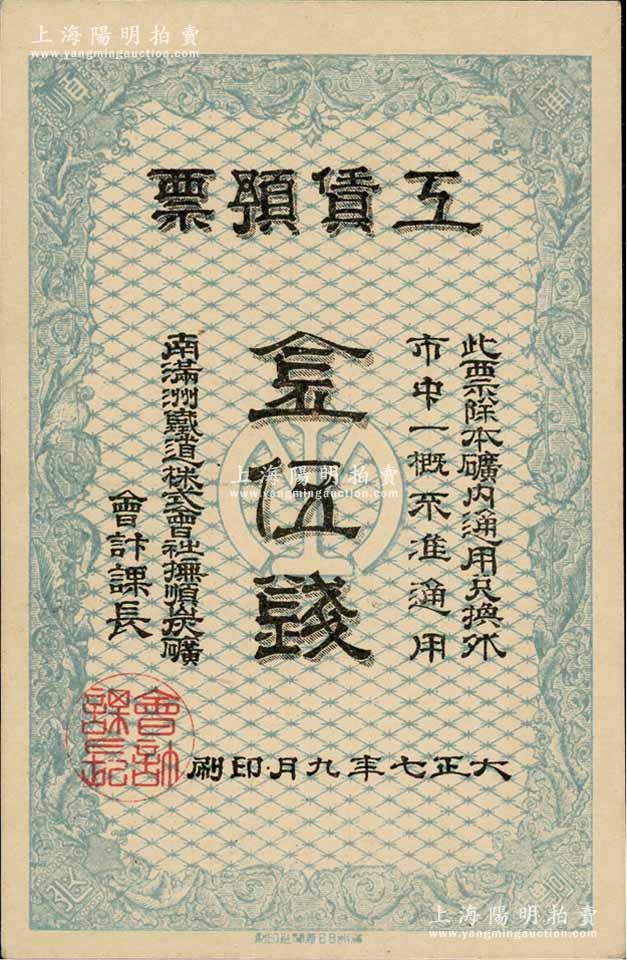 上海陽明拍賣
www.yangmingauction.com
撫順
工賃領票
此票除本礦内通用兑換外
市中一概不准通用
金伍錢
南滿洲鐵道株式會社撫順炭礦
會計課長
會計課長
大正七年九月印刷
上海陽明拍賣
www.yangmingauction.com
上海陽明拍賣
www.yangmingauction.com